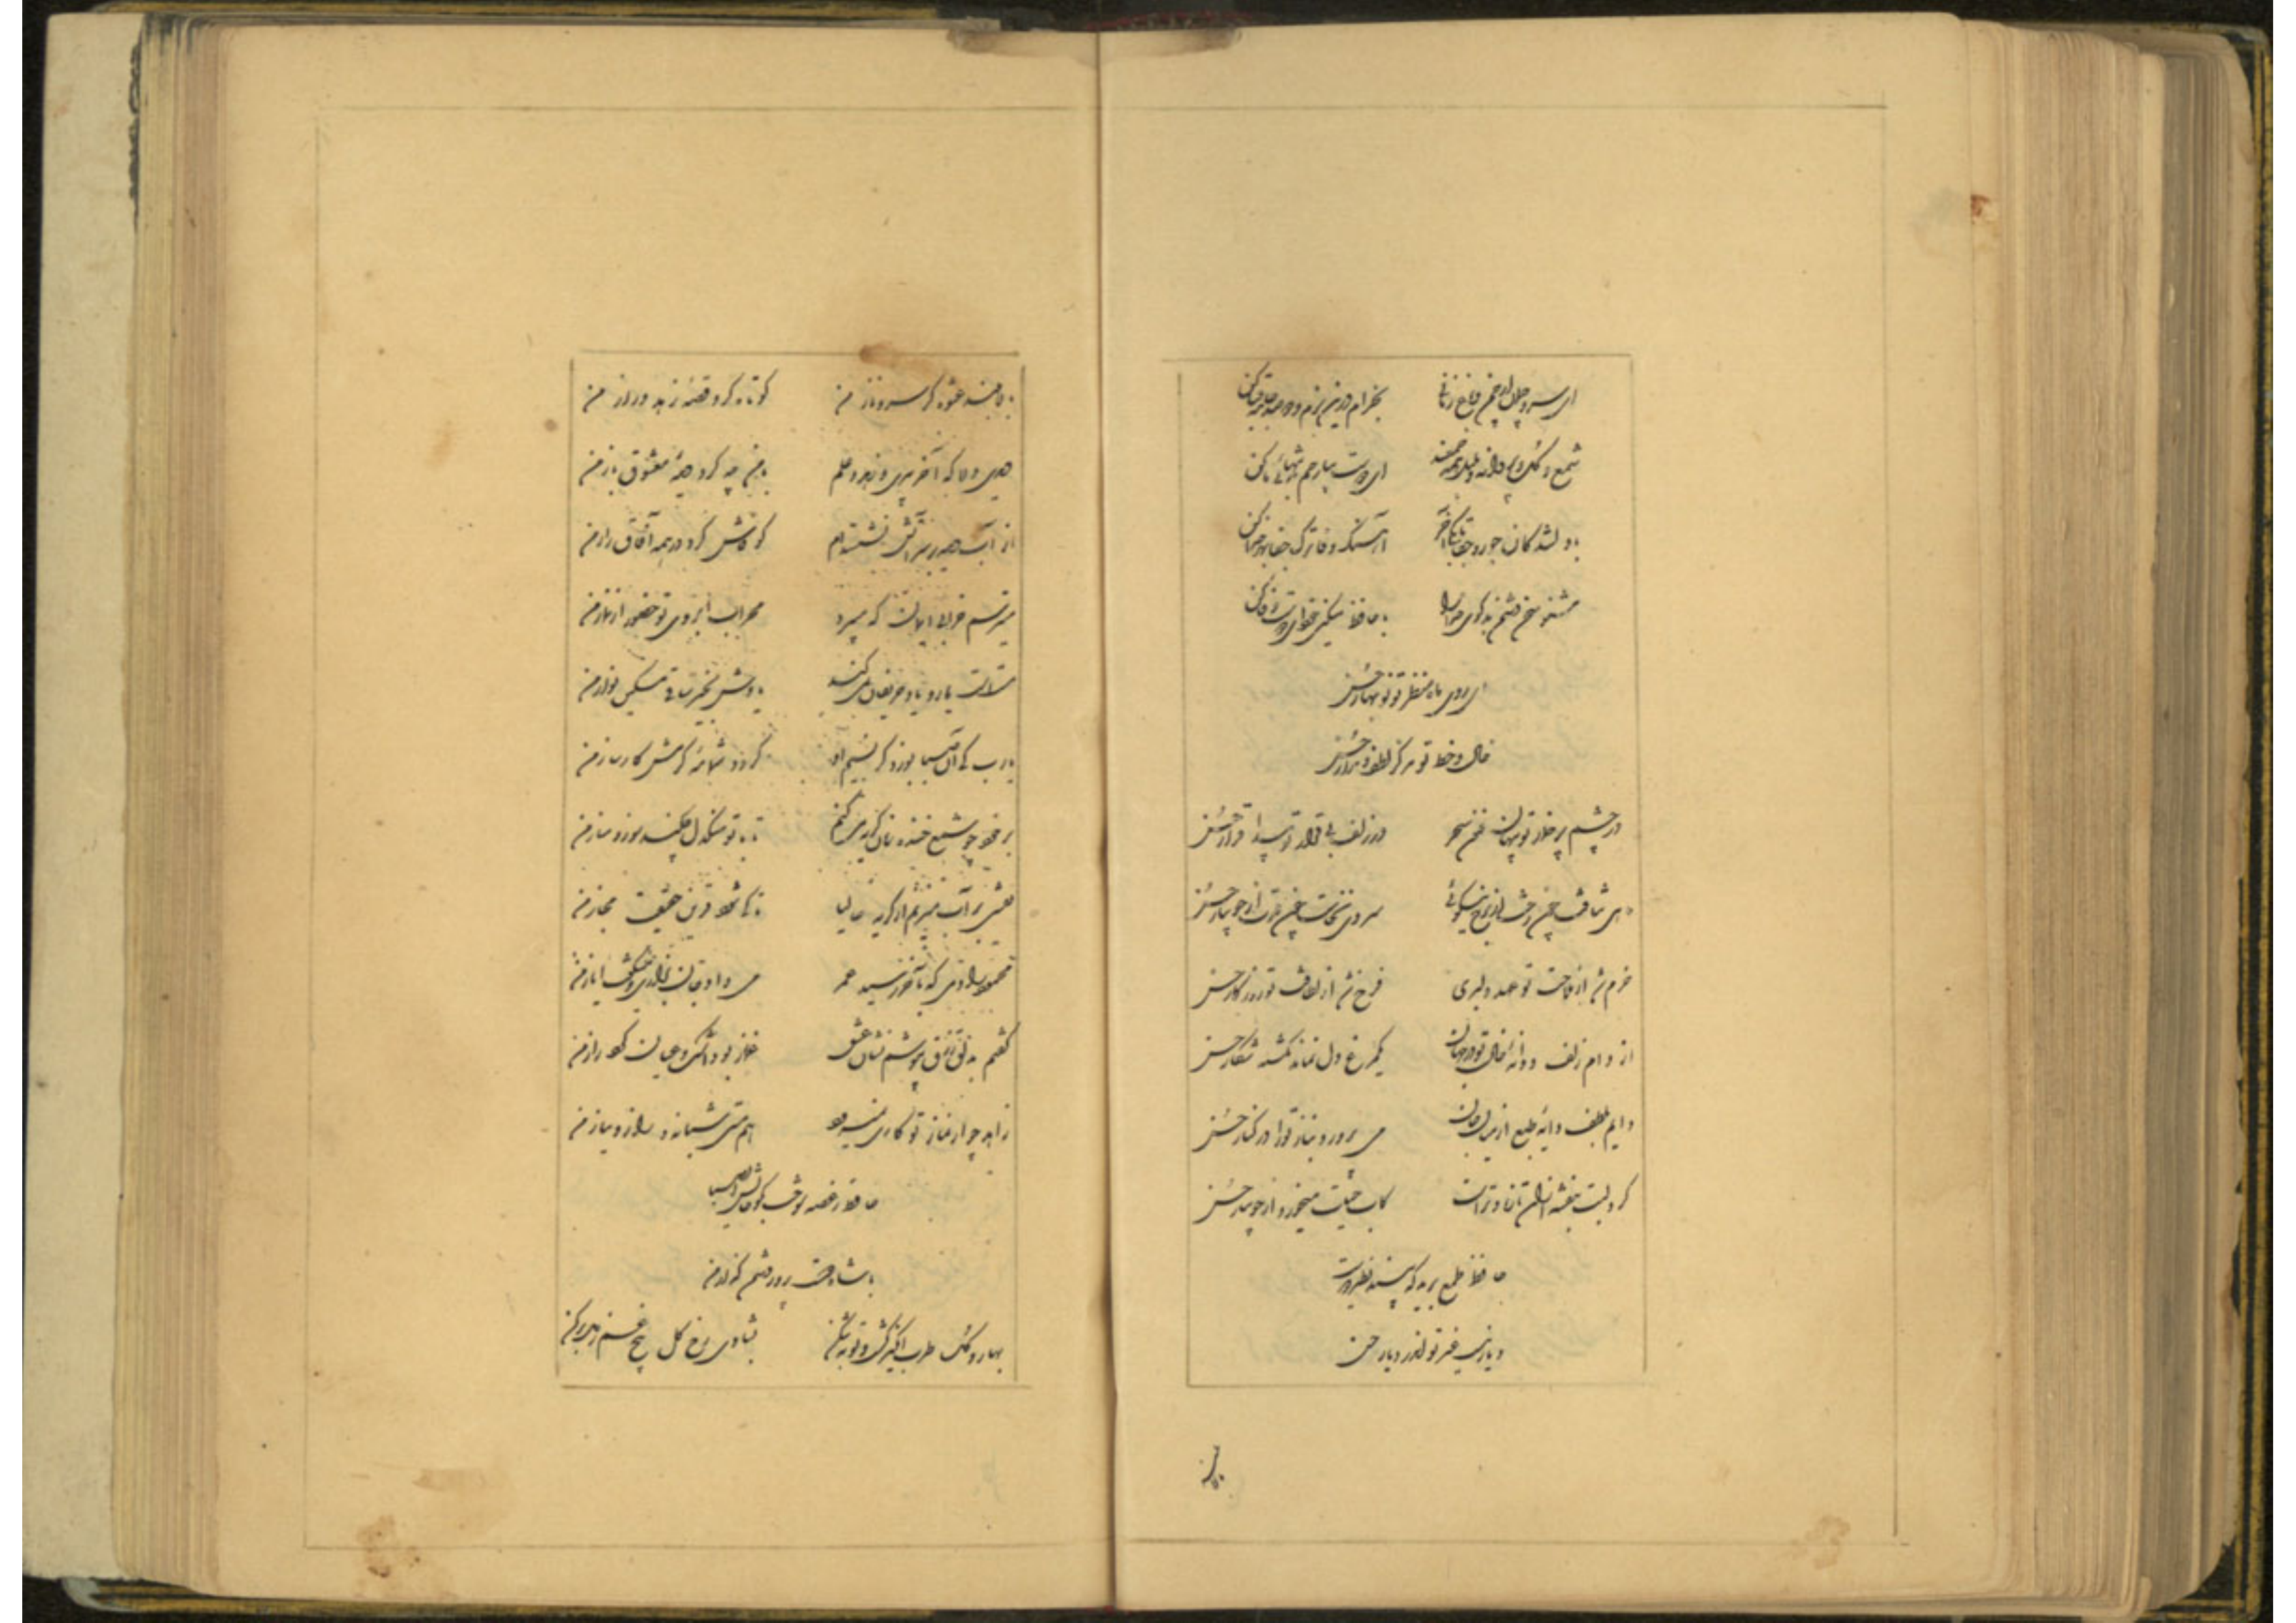 ای سرو چمان از چمن و باغ زمانی بخرام درین بزم و دو صد جامه قبا کن
شمع و گل و پروانه و بلبل همه جمعند ای دوست بیا رحم به تنهائی ما کن
با دلشدگان جور و جفا تا بکی آخر آهنگ وفا ترک جفا بهر خدا کن
مشنو سخن دشمن بدگوی خدا را با حافظ مسکین خود ای دوست وفا کن
ای روی ماه منظر تو نوبهار حسن
خال و خط تو مرکز لطف و مدار حسن
در چشم پر خمار تو پنهان فنون سحر در زلف بی قرار تو پیدا قرار حسن
ماهی نتافت چون رخت از برج نیکوئی سروی نخاست چون قدت از جویبار حسن
خرم شد از ملاحت تو عهد دلبری فرخ شد از لطافت تو روزگار حسن
از دام زلف و دانه خال تو در جهان یکمرغ دل نماند نگشته شکار حسن
دایم بلطف دایه طبع از میان جان می پرورد بناز ترا در کنار حسن
گرد لبت بنفشه از آن تازه و ترست کاب حیات میخورد از جویبار حسن
حافظ طمع برید که بیند نظیر دوست
دیار نیست غیر تو اندر دیار حسن
بالا بلند عشوه گر سرو ناز من کوتاه کرد قصه زهد دراز من
دیدی دلا که آخر پیری و زهد و علم با من چه کرد دیده معشوق باز من
از آب دیده بر سر آتش نشسته ام کو فاش کرد در همه آفاق راز من
میترسم از خرابی ایمان که میبرد محراب ابروی تو حضور از نماز من
مستست یار و یاد حریفان نمی کند یادش بخیر ساقی مسکین نواز من
یا رب کی آن صبا بوزد کز نسیم او گردد شمامه کرمش کارساز من
بر خود چو شمع خنده زنان گریه می کنم تا با تو سنگدل چکند سوز و ساز من
نقشی بر آب میزنم از گریه حالیا تا کی شود قرین حقیقت مجاز من
محمود را دمی که به آخر رسید عمر می داد جان بزاری و می گفت ایاز من
گفتم به دلق زرق بپوشم نشان عشق غماز بود اشک و عیان کرد راز من
زاهد چو از نماز تو کاری نمیرود هم مستی شبانه و راز و نیاز من
حافظ ز غصه سوخت بگو حالش ای صبا
با شاه دوست پرور دشمن گداز من
بهار و گل طرب انگیز گشت و توبه شکن بشادی رخ گل بیخ غم ز دل بر کن